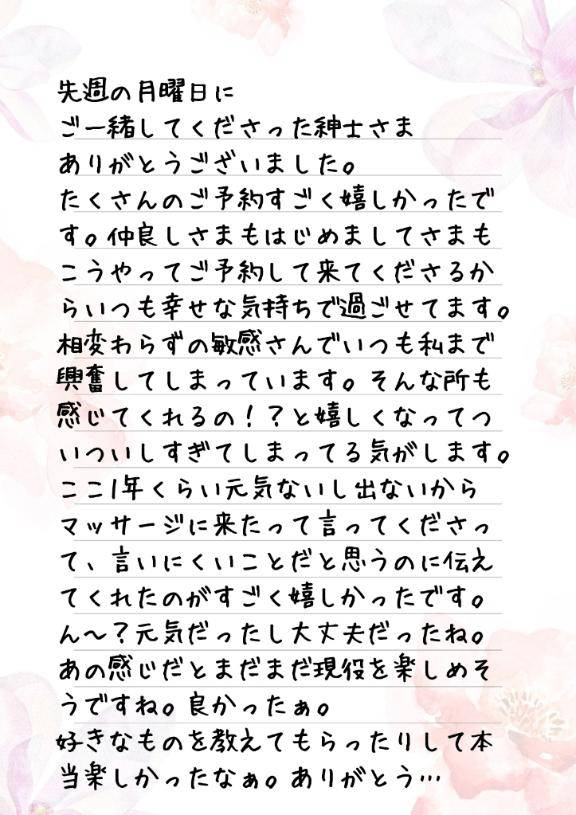 先週の月曜日に
ご一緒してくださった紳士さま
ありがとうございました。
たくさんのご予約すごく嬉しかったで
す。仲良しさまもはじめましてさまも
こうやってご予約して来てくださるか
らいつも幸せな気持ちで過ごせてます。
相変わらずの敏感さんでいつも私まで
興奮してしまっています。そんな所も
感じてくれるの！？と嬉しくなってつ
いついしすぎてしまってる気がします。
ここ1年くらい元気ないし出ないから
マッサージに来たって言ってくださっ
て、言いにくいことだと思うのに伝え
てくれたのがすごく嬉しかったです。
ん〜？元気だったし大丈夫だったね。
あの感じだとまだまだ現役を楽しめそ
うですね。良かったぁ。
好きなものを教えてもらったりして本
当楽しかったなぁ。ありがとう…